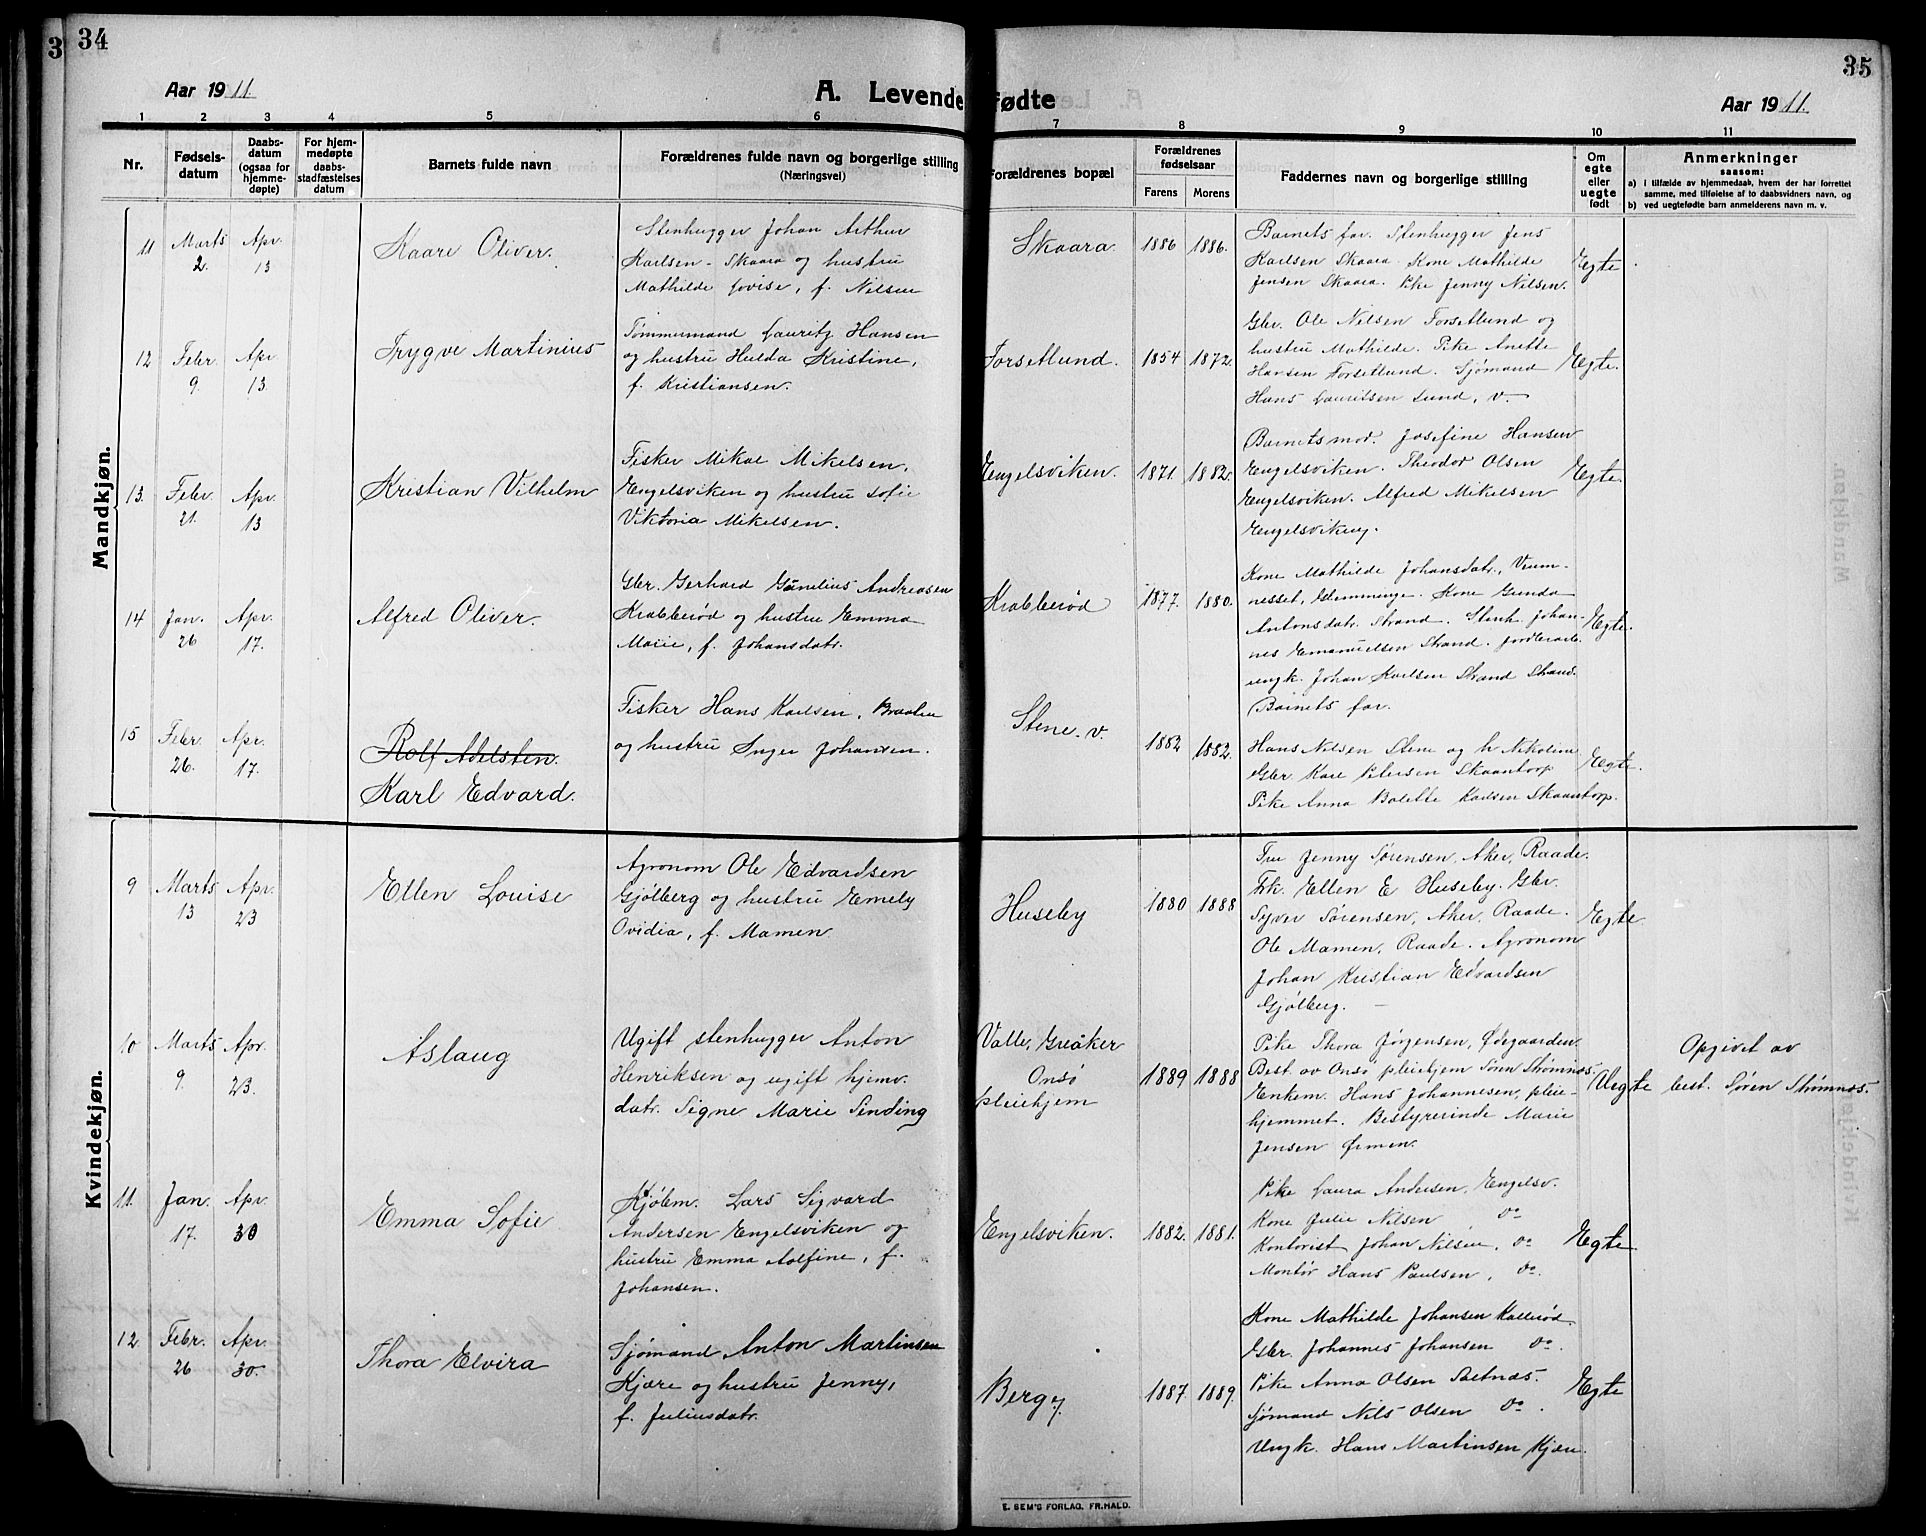 34
Aar 1911.
A. Levende
1 2 3 4 5 6
Nr.
Fødsels-
datum
Daabs-
datum
(ogsaa for
hjemme-
døpte)
For hjem-
medøpte
daabs-
stadfæstelses
datum
Barnets fulde navn
Forældrenes fulde navn og borgerlige stilling
(Næringsvei)
Mandkjøn.
11 Marts 2. Apr. 13
Kaare Oliver.
Stenhugger Johan Arthur
Karlsen - Skaara og hustru
Mathilde Lovise, f. Nilsen
12 Febr. 9 Apr 13.
Trygve Martinius
Tømmermand Lauritz Hansen
og hustru Hulda Kristine,
f. Kristiansen.
13. Febr. 21. Apr. 13
Kristian Vilhelm
Fisker Mikal Mikelsen,
Engelsviken og hustru Sofie
Viktoria Mikelsen.
14 Jan. 26 Apr. 17.
Alfred Oliver.
Gbr. Gerhard Andreasen
Krabberød og hustru Emma
Marie, f. Johansdatr.
15 Febr. 26. Apr. 17.
Rolf Adelsten.
Karl Edvard.
Fisker Hans Karlsen, Braaten
og hustru Inger Johansen.
Kvindekjøn.
9 Marts 13 Apr. 23
Ellen Louise
Agronom Ole Edvardsen
Gjølberg og hustru Emely
Ovidia, f. Mamen
10 Marts 9. Apr. 23.
Aslaug
Ugift stenhugger Anton
Henriksen og ugift hjemv.
datr. Signe Marie Sinding
11. Jan. 17. Apr 30
Emma Sofie
Kjøbm. Lars Sigvard
Andersen Engelsviken og
hustru Emma Aolfine, f.
Johansen.
12 Febr. 26 Apr. 30.
Thora Elvira
Sjømand Anton Martinsen
Kjære og hustru Jenny,
f. Juliusdatr.
35
fødte
Aar 1911.
7 8 9 10 11
Forældrenes bopæl
Forældrenes
fødselsaar
Farens Morens
Faddernes navn og borgerlige stilling
Om
egte
eller
uegte
født
Anmerkninger
saasom:
a) i tilfælde av hjemmedaab, hvem der har forrettet
samme, med tilføielse af to daabsvidners navn, og
b) ved uegtefødte barn anmelderens navn m. v.
Skaara. 1886 1886.
Barnets far. Stenhugger Jens
Karlsen Skaara. Kone Mathilde
Jensen Skaara. Pike Jenny Nilsen.
Egte
Forsetlund. 1854 1872.
Gbr. Ole Nilsen Forsetlund og
hustru Mathilde. Pike Anette
Hansen Forsetlund. Sjømand
Hans Lauritsen Lund, v.
Egte.
Engelsviken. 1871. 1882.
Barnets mor. Josefine Hansen
Engelsviken. Theodor Olsen
Engelsviken. Alfred Mikelsen
Engelsviken.
Egte
Krabberød 1877. 1880.
Kone Mathilde Johansdatr.,
nesset, Glemminge. Kone Gunda
Antonsdatr. Strand. Stenh. Johan-
nes Emanuelsen Strand.
ungk. Johan Karlsen Strand
Barnets far.
Egte.
Stene. v. 1882 1882.
Hans Nilsen Stene og h. Nikoline
Gbr. Kare Petersen Skaantorp
Pike Anna Bolette Karlsen Skaantorp.
Egte.
Huseby 1880 1888
Fru Jenny Sørensen, Aker, Raade.
Frk. Ellen E Huseby. Gbr.
Syver Sørensen, Aker, Raade.
Ole Mamen, Raade. Agronom
Johan Kristian Edvardsen
Gjølberg.
Egte
Valle, Greåker
Onsø
pleiehjem
1889 1888
Pike Thora Jørgensen, Ødegaarden
Best. av Onsø pleiehjem Søren Strømnes.
Enkem. Hans Johannesen, pleie-
hjemmet. Bestyrerinde Marie
Jensen Ørmen.
Uegte
Opgivet av
best. Søren Strømnes.
Engelsviken. 1882. 1881.
Pike Laura Andersen, Engelsv.
Kone Julie Nilsen do
Kontorist Johan Nilsen, do
Montør Hans Paulsen, do.
Egte
Berg, 1887. 1889.
Kone Mathilde Johansen Kallerød
Gbr. Johannes Johansen do.
Pike Anna Olsen Saltnæs.
Sjømand Nils Olsen do.
Ungk. Hans Martinsen Kjære.
Egte
E. SEM'S FORLAG. FR.HALD.